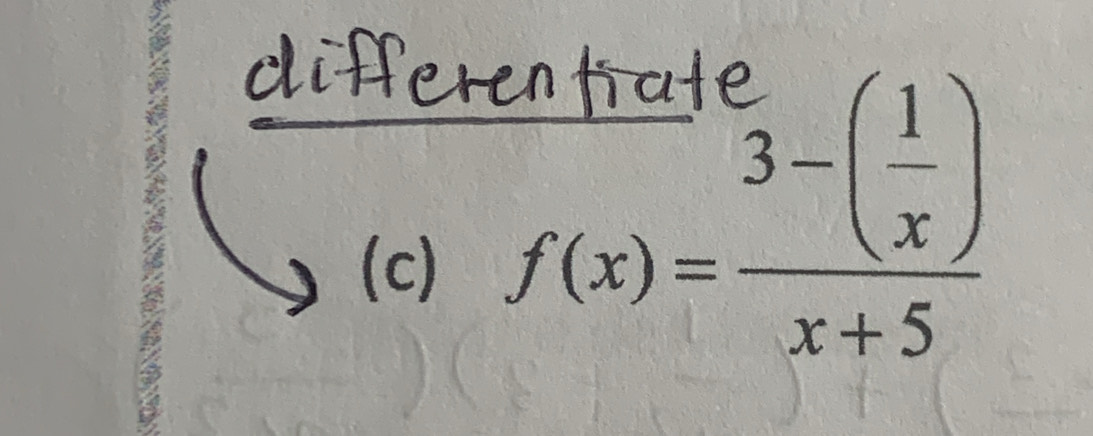 differentiate
(c) f(x) = \frac{3-\left(\frac{1}{x}\right)}{x+5}